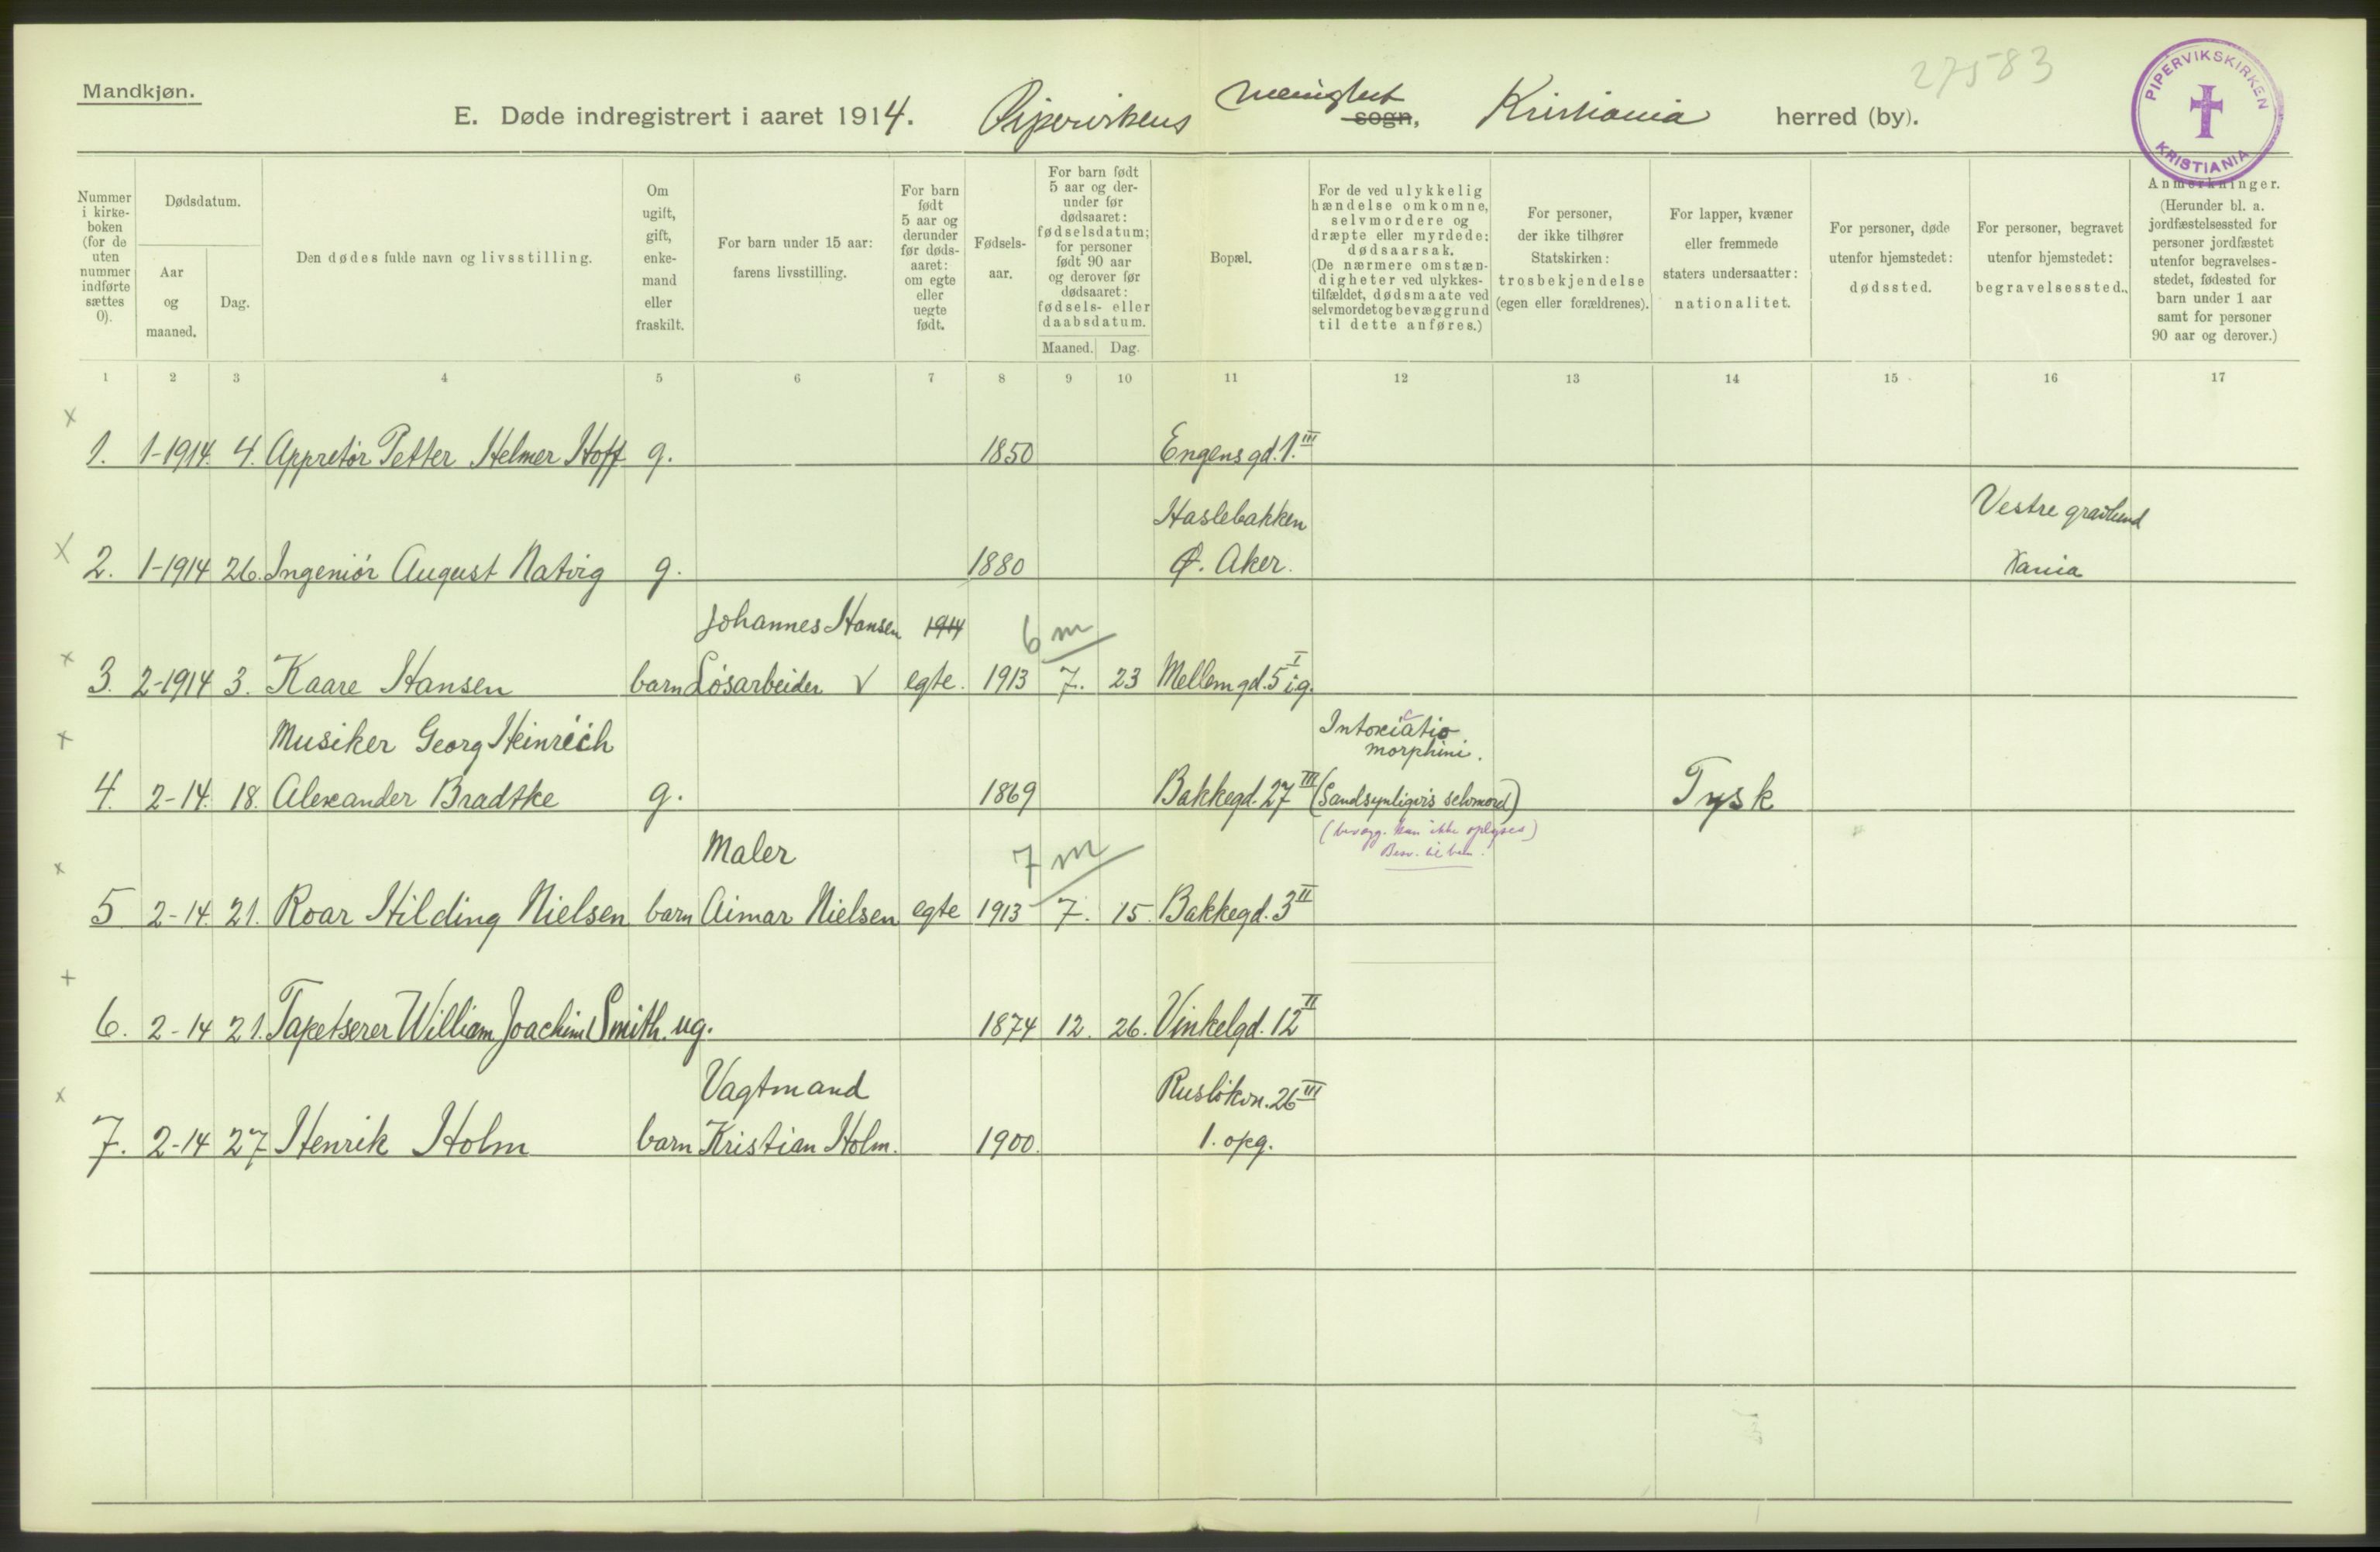 27583
Mandkjøn.
E. Døde indregistrert i aaret 1914. Pipervikens menighet sogn, Kristiania herred (by).
PIPERVIKSKIRKEN KRISTIANIA
Nummer i kirke-boken (for de uten nummer indførte sættes 0).
Dødsdatum.
Aar og maaned.
Dag.
Den dødes fulde navn og livsstilling.
Om ugift, gift, enke-mand eller fraskilt.
For barn under 15 aar: farens livsstilling.
For barn født 5 aar og derunder før døds-aaret: om egte eller uegte født.
Fødsels-aar.
For barn født 5 aar og der-under før dødsaaret: fødselsdatum; for personer født 90 aar og derover før dødsaaret: fødsels- eller daabsdatum.
Maaned. Dag.
Bopæl.
For de ved ulykkelig hændelse omkomne, selvmordere og dræpte eller myrdede: dødsaarsak. (De nærmere omstæn-digheter ved ulykkes-tilfældet, dødsmaate ved selvmordet og bevæggrund til dette anføres.)
For personer, der ikke tilhører Statskirken: trosbekjendelse (egen eller forældrenes).
For lapper, kvæner eller fremmede staters undersaatter: nationalitet.
For personer, døde utenfor hjemstedet: dødssted.
For personer, begravet utenfor hjemstedet: begravelsessted.
Anmerkninger. (Herunder bl. a. jordfæstelsessted for personer jordfæstet utenfor begravelses-stedet, fødested for barn under 1 aar samt for personer 90 aar og derover.)
1 2 3 4 5 6 7 8 9 10 11 12 13 14 15 16 17
x
1. 1-1914. 4. Appretør Petter Helmer Hoff g. 1850 Engens gd. 1. III
Haslebakken Vestre gravlund
x
2. 1-1914 26. Ingeniør August Natvig g. 1880 Ø. Aker. Kania
Johannes Hansen 1914 6 m
x
3. 2-1914 3. Kaare Hansen barn Løsarbeider v egte. 1913 7. 23 Mellemgd. 5 I i.g.
x
Musiker Georg Heinrich Intoxicatio
morphini.
4. 2-14. 18. Alexander Bradtke g. 1869 Bakkegd. 27 III (Sandsynligvis selvmord) Tysk
(bevægg. kan ikke oplyses)
Maler 7 m
x
5 2-14. 21. Roar Hilding Nielsen barn Aimar Nielsen egte 1913 7. 15. Bakkegd. 3 II
+
6. 2-14 21. Tapetserer William Joachim Smith. ug. 1874 12. 26. Vinkelgd. 12 II
Vagtmand Rusløkvn. 26 III
x
7. 2-14 27 Henrik Holm barn Kristian Holm. 1900. 1. opg.